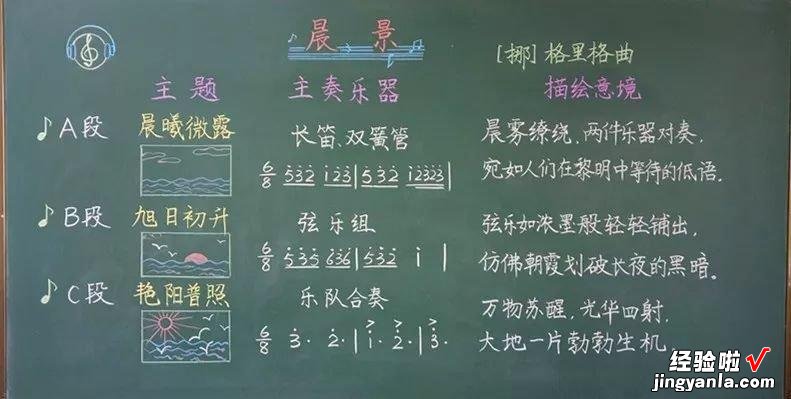 晨景
[挪]格里格曲
主题 主奏乐器 描绘意境
A段 晨曦微露 长笛、双簧管 晨雾缭绕,两件乐器对奏,
宛如人们在黎明中等待的低语。
6/8 532 123|532 12323|
B段 旭日初升 弦乐组 弦乐如浓墨般轻轻铺出,
仿佛朝霞划破长夜的黑暗。
6/8 535 636|532 1|
C段 艳阳普照 乐队合奏 万物苏醒,光华四射,
大地一片勃勃生机。
6/8 3· 2·|1· 2·|3·
经验啦√
jingyanla.com